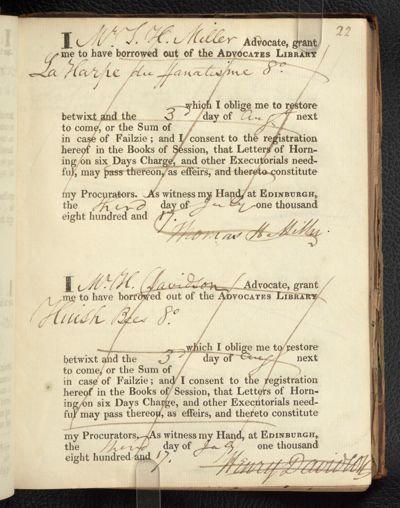 22
I Mr. T. H. Miller Advocate, grant
me to have borrowed out of the ADVOCATES LIBRARY
La Harpe du fanatisme 8o
which I oblige me to restore
betwixt and the 3d day of Augt next
to come, or the Sum of
in case of Failzie; and I consent to the registration
hereof in the Books of Session, that Letters of Horn-
ing on six Days Charge, and other Executorials need-
ful, may pass thereon, as effeirs, and thereto constitute
my Procurators. As witness my Hand, at EDINBURGH,
the third day of July one thousand
eight hundred and 17.
Thomas H. Miller.
I Mr. H. Davidson Advocate, grant
me to have borrowed out of the ADVOCATES LIBRARY
Huish Bees 8o
which I oblige me to restore
betwixt and the 3d day of Augt next
to come, or the Sum of
in case of Failzie; and I consent to the registration
hereof in the Books of Session, that Letters of Horn-
ing on six Days Charge, and other Executorials need-
ful may pass thereon, as effeirs, and thereto constitute
my Procurators. As witness my Hand, at EDINBURGH,
the third day of July one thousand
eight hundred and 17.
Henry Davidson